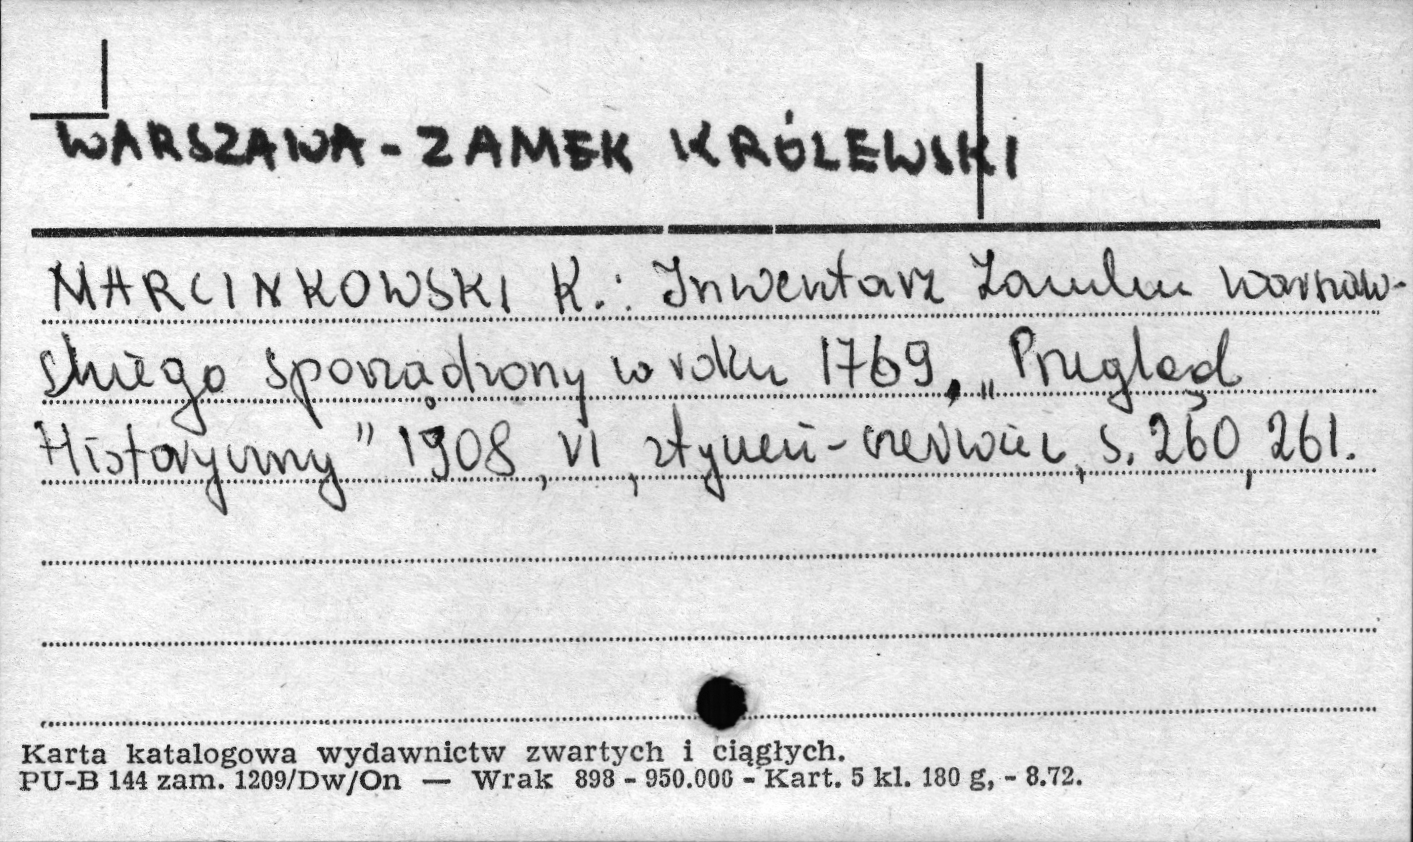 WARSZAWA - ZAMEK KRÓLEWSKI
MARCINKOWSKI K.: Inwentarz Zamku warszaw-
skiego sporządzony w roku 1769, „Przegląd
Historyczny" 1908, VI, styczeń - czerwiec, s. 260, 261.
Karta katalogowa wydawnictw zwartych i ciągłych.
PU-B 144 zam. 1209/Dw/On — Wrak 898 - 950.000 - Kart. 5 kl. 180 g, - 8.72.